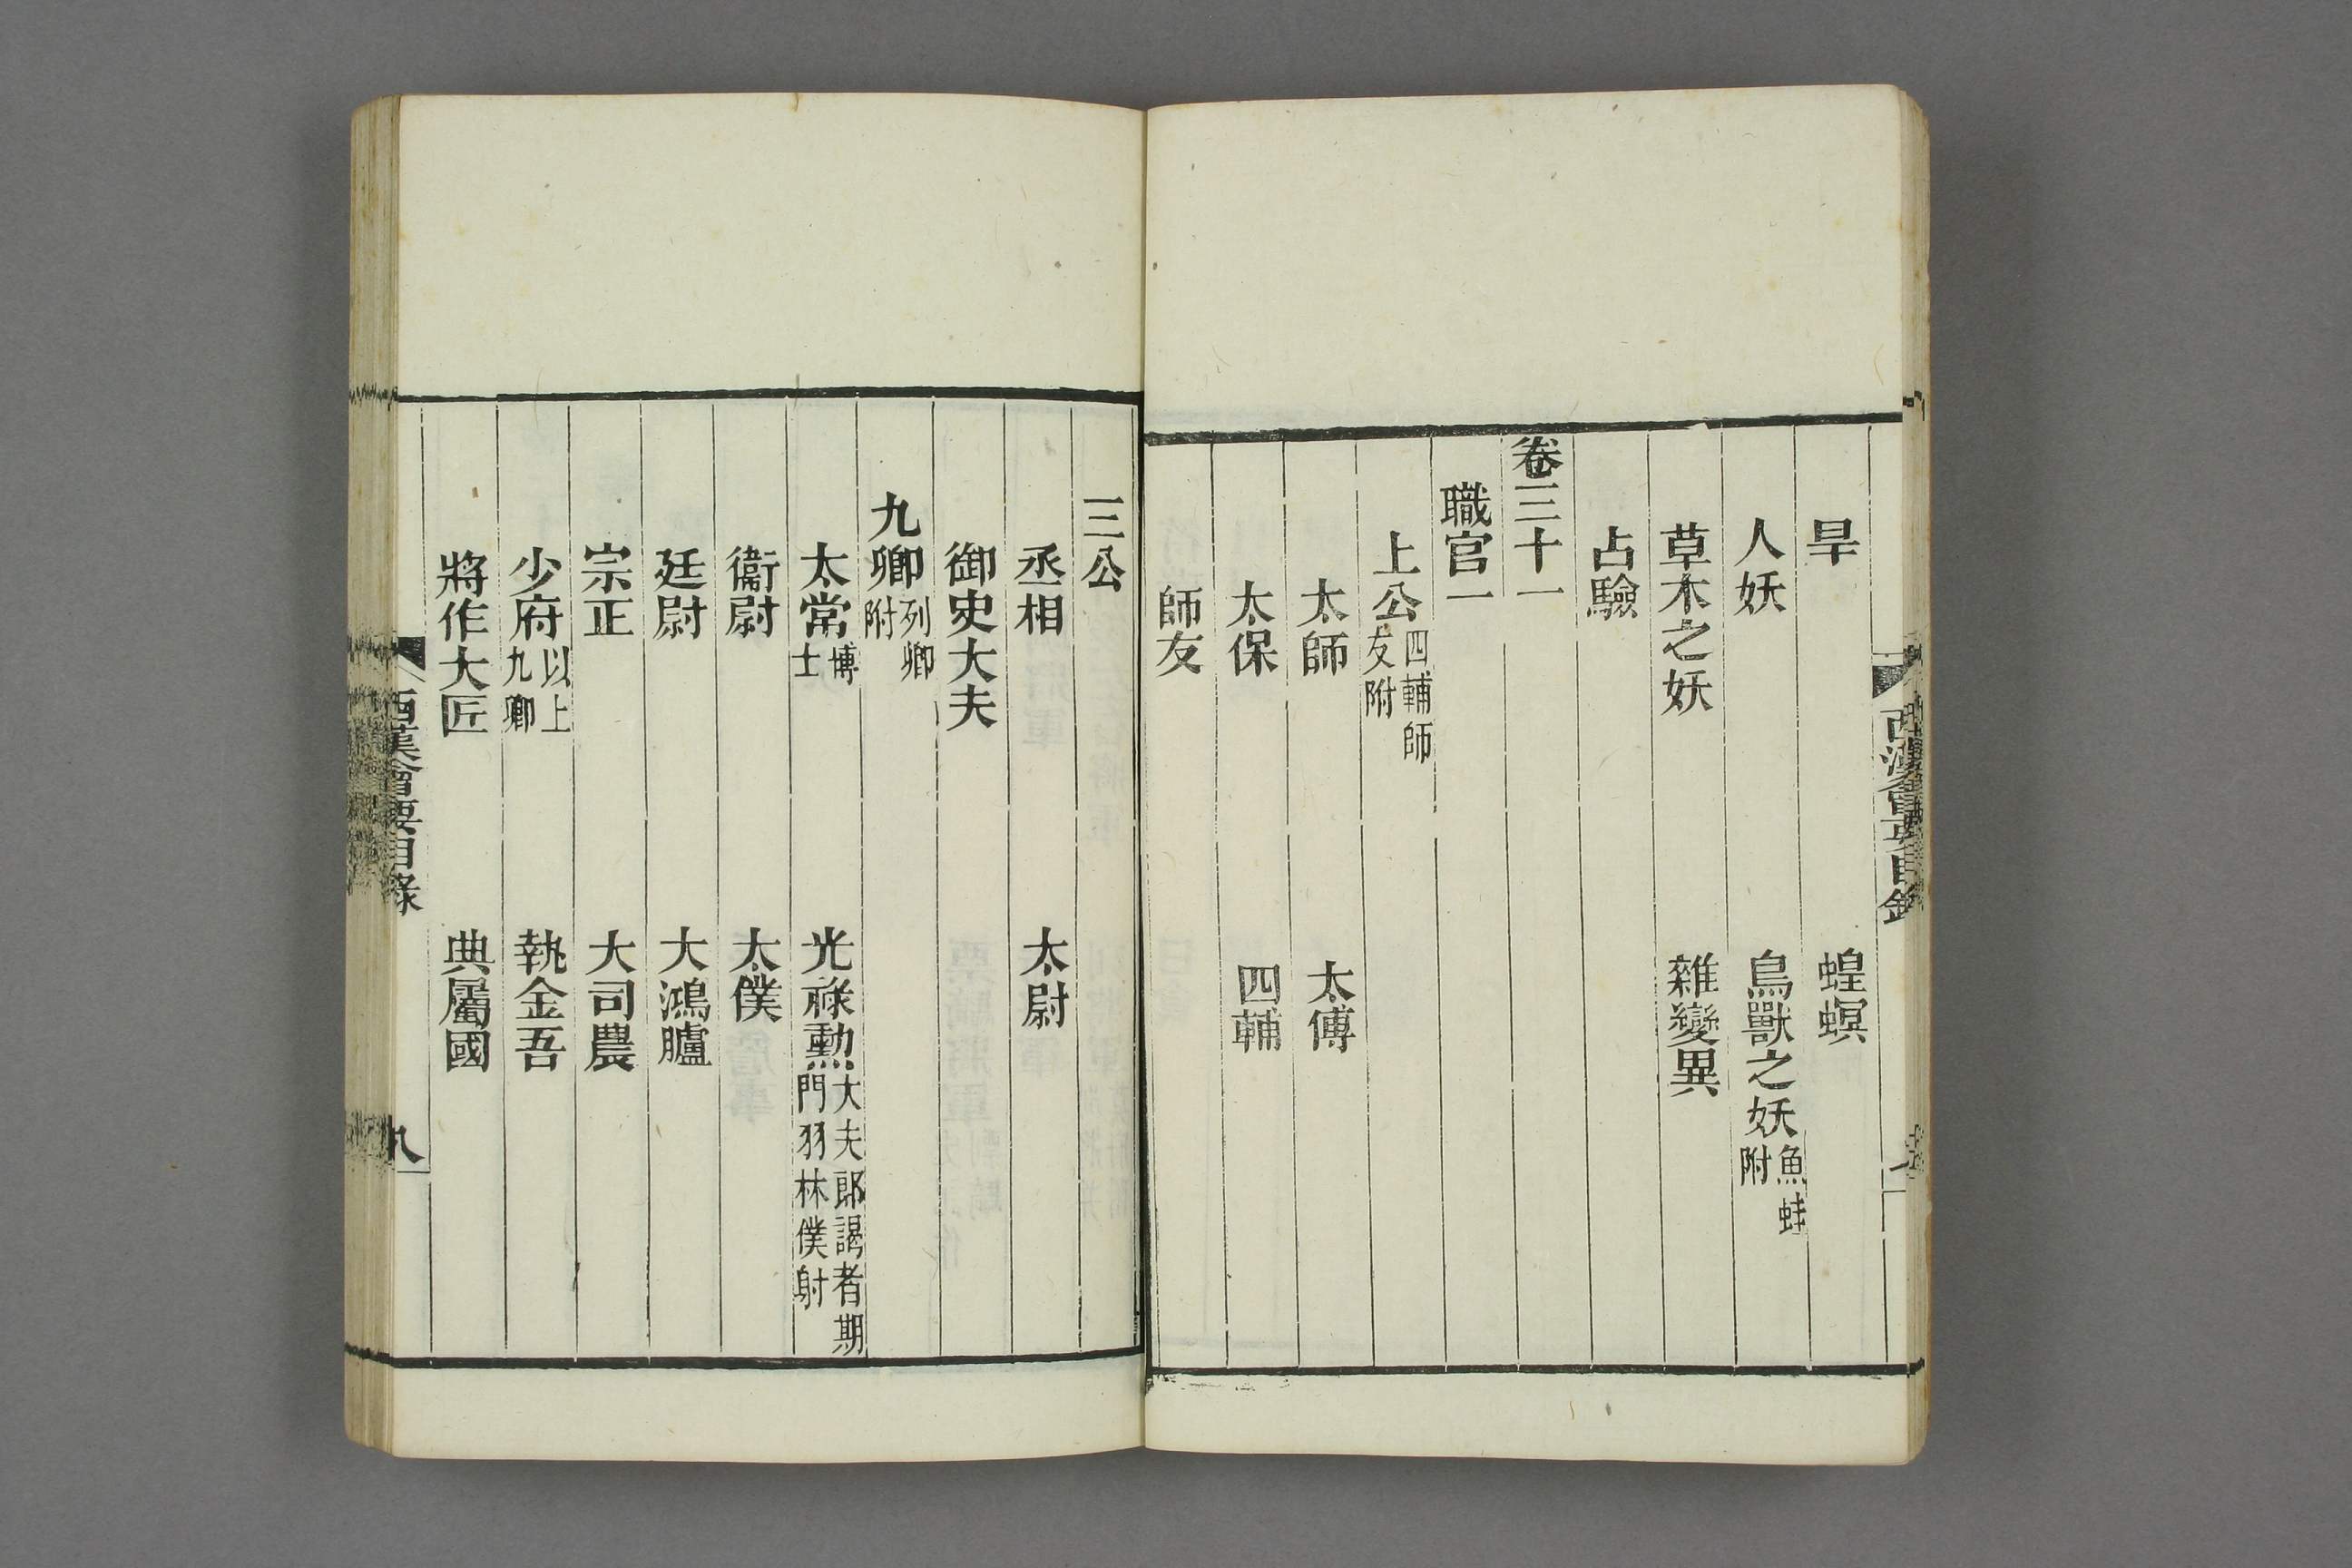 西漢會要目錄
旱 蝗螟
人妖 鳥獸之妖魚蛙附
草木之妖 雜變異
占驗
卷三十一
職官一
上公四輔師友附
太師 太傅
太保 四輔
師友
三公
丞相 太尉
御史大夫
九卿列卿附
太常博士 光祿勲大夫郎謁者期門羽林僕射
衞尉 太僕
廷尉 大鴻臚
宗正 大司農
少府以上九卿 執金吾
將作大匠 典屬國
西漢會要目錄
八